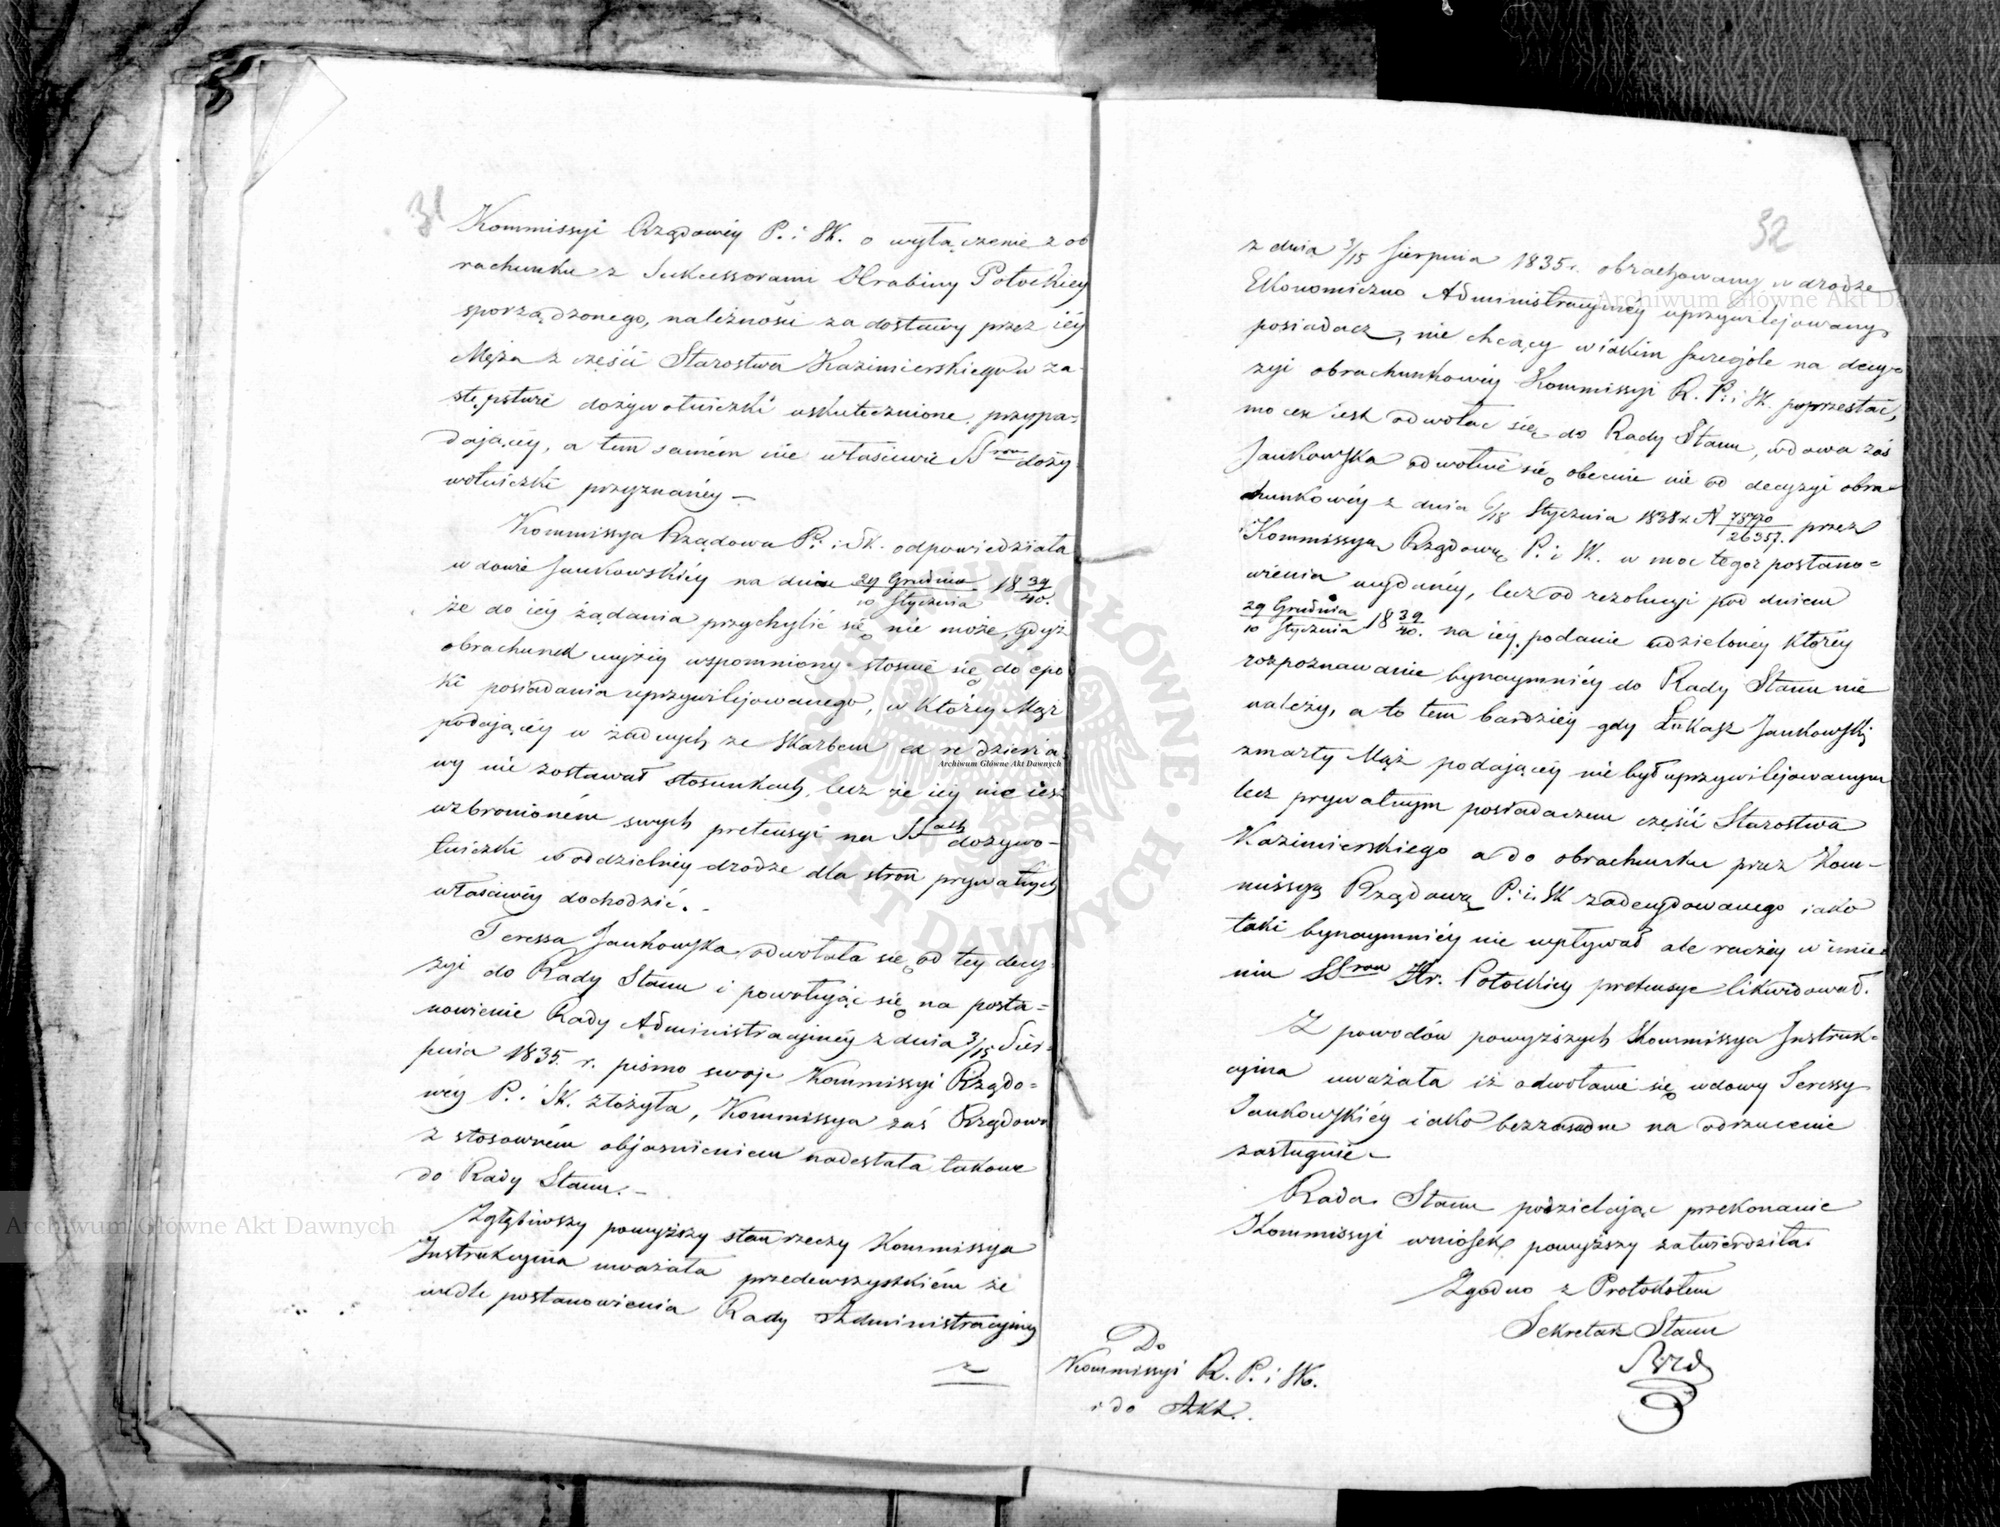 31
Kommissyi Rządowéy P. i Sk. o wyłączenie z ob
rachunku z Sukcessorami Hrabiny Potockiey
sporządzonego, należności za dostawy przez iéy
Męża z części Starostwa Kazimierskiego w za-
stępstwie dożywotniczki uskutecznione, przypa-
daiącéy, a tem samém nie właściwie SSrom doży-
wotniczki przyznanéy —
Kommissya Rządowa P. i Sk. odpowiedziała
wdowie Jankowskiéy na dniu 29 Grudnia/10 Stycznia 18 39/40.
że do iéy żądania przychylić się nie może, gdyż
obrachunek wyżéy wspomniony stosuie się do epo
ki posiadania uprzywilejowanego, w któréy Mąż
podaiącéy w żadnych ze Skarbem ex re dzierża
wy nie zostawał stosunkach, lecz że iéy nie iest
wzbronioném swych pretensyi na SSach dożywo-
tniczki w oddzielnéy drodze dla stron prywatnych
właściwéy dochodzić. -
Teressa Jankowska odwołała się od téy decy-
zyi do Rady Stanu i powołuiąc się na posta-
nowienie Rady Administracyinéy z dnia 3/15 Sier-
pnia 1835. r. pismo swoje Kommissyi Rządo-
wéy P. i Sk. złożyła, Kommissya zaś Rządowa
z stosowném objaśnieniem nadesłała takowe
do Rady Stanu. -
Zgłębiwszy powyższy stan rzeczy Kommissya
Instrukcyina uważała przedewszystkiém że
wedle postanowienia Rady Administracyinéy
32
z dnia 3/15 Sierpnia 1835 r. obrachowany w drodze
Ekonomiczno Administracyinéy uprzywilejowany
posiadacz, nie chcący w iakim szczególe na decy-
zyi obrachunkowéy Kommissyi R. P. i Sk. poprzestać,
mocen iest odwołać się do Rady Stanu, wdowa zaś
Jankowska odwołuie się obecnie nie od decyzyi obra-
chunkowéy z dnia 6/18 Stycznia 1838 r. N 78770/26357. przez
Kommissyą Rządową P. i Sk. w moc tegoż postano-
wienia wydanéy, lecz od rezolucyi pod dniem
29 Grudnia/10 Stycznia 18 39/40. na iéy podanie udzielonéy któréy
rozpoznawanie bynaymniéy do Rady Stanu nie
należy, a to tem bardziéy gdy Łukasz Jankowski
zmarły Mąż podaiącéy nie był uprzywilejowanym
lecz prywatnym posiadaczem części Starostwa
Kazimierskiego a do obrachunku przez Kom-
missyą Rządową P. i Sk zadecydowanego iako
taki bynaymniéy nie wpływał ale raczéy w imie-
niu SSrow Hr. Potockiéy pretensye likwidował.
Z powodów powyższych Kommissya Instruk-
cyina uważała iż odwołanie się wdowy Teressy
Jankowskiéy iako bezzasadne na odrzucenie
zasługuie -
Rada Stanu podzielaiąc przekonanie
Kommissyi wniosek powyższy zatwierdziła.
Zgodno z Protokołem
Sekretarz Stanu
Do
Kommissyi R. P. i Sk.
i do Akt.
Archiwum Główne Akt Dawnych
Archiwum Główne Akt Dawnych
Archiwum Główne Akt Dawnych
ARCHIWUM GŁÓWNE AKT DAWNYCH